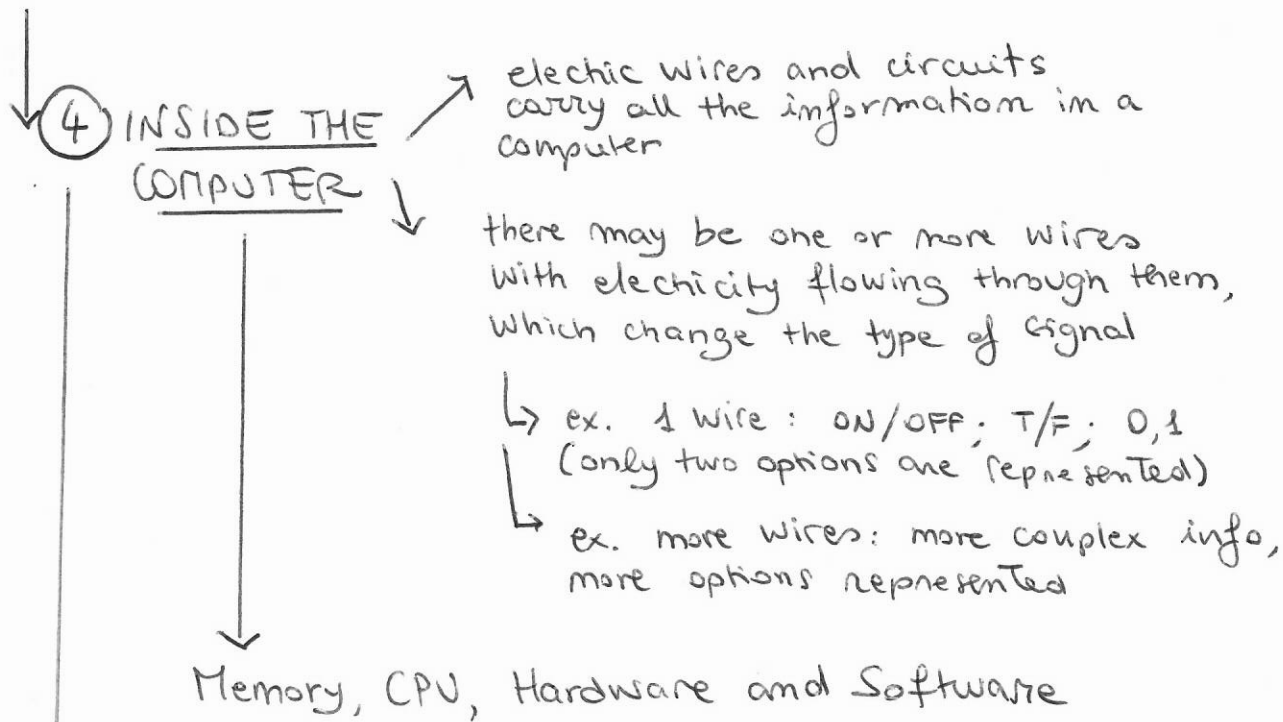 electric wires and circuits
carry all the information in a
computer
④ INSIDE THE
COMPUTER
there may be one or more wires
with electricity flowing through them,
which change the type of signal
ex. 1 wire: ON/OFF; T/F; 0,1
(only two options are represented)
ex. more wires: more complex info,
more options represented
Memory, CPU, Hardware and Software